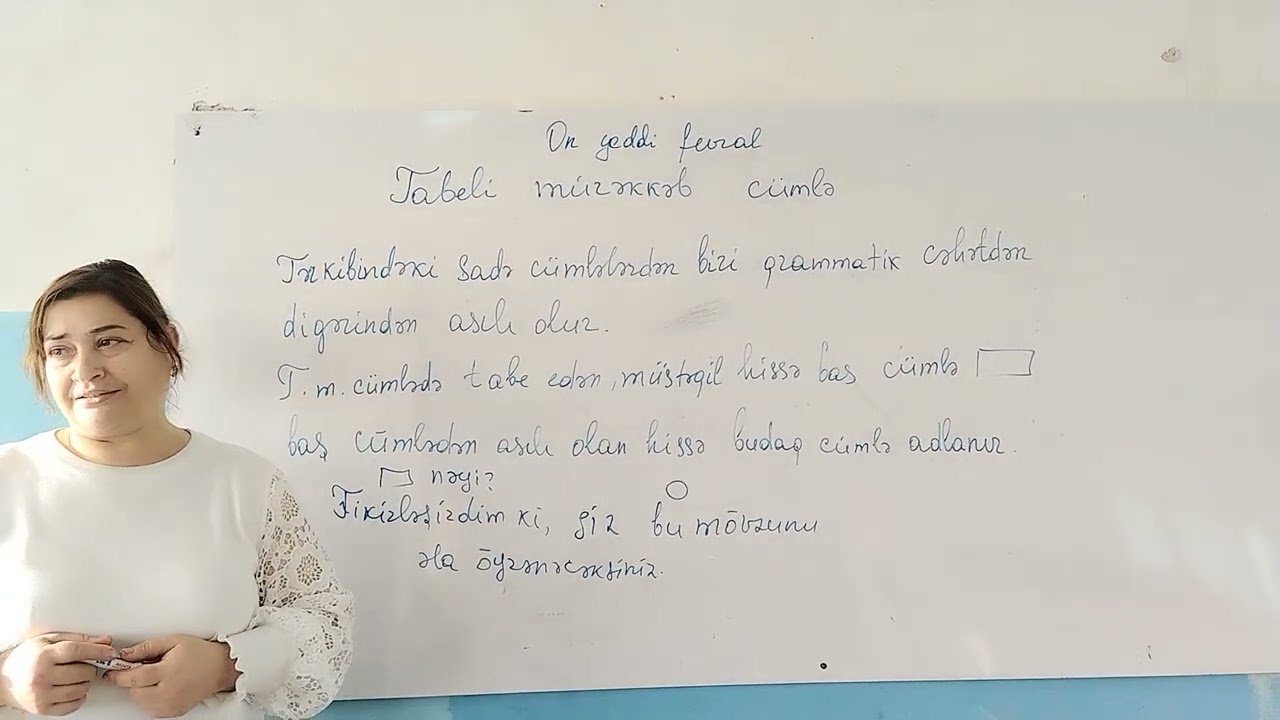 On yeddi fevral
Tabeli mürəkkəb cümlə
Tərkibindəki sadə cümlələrdən biri qrammatik cəhətdən
digərindən asılı olur.
T.m. cümlədə tabe edən, müstəqil hissə baş cümlə
baş cümlədən asılı olan hissə budaq cümlə adlanır.
nəyi?
Fikirləşirdim ki, siz bu mövzunu
əla öyrənəcəksiniz.